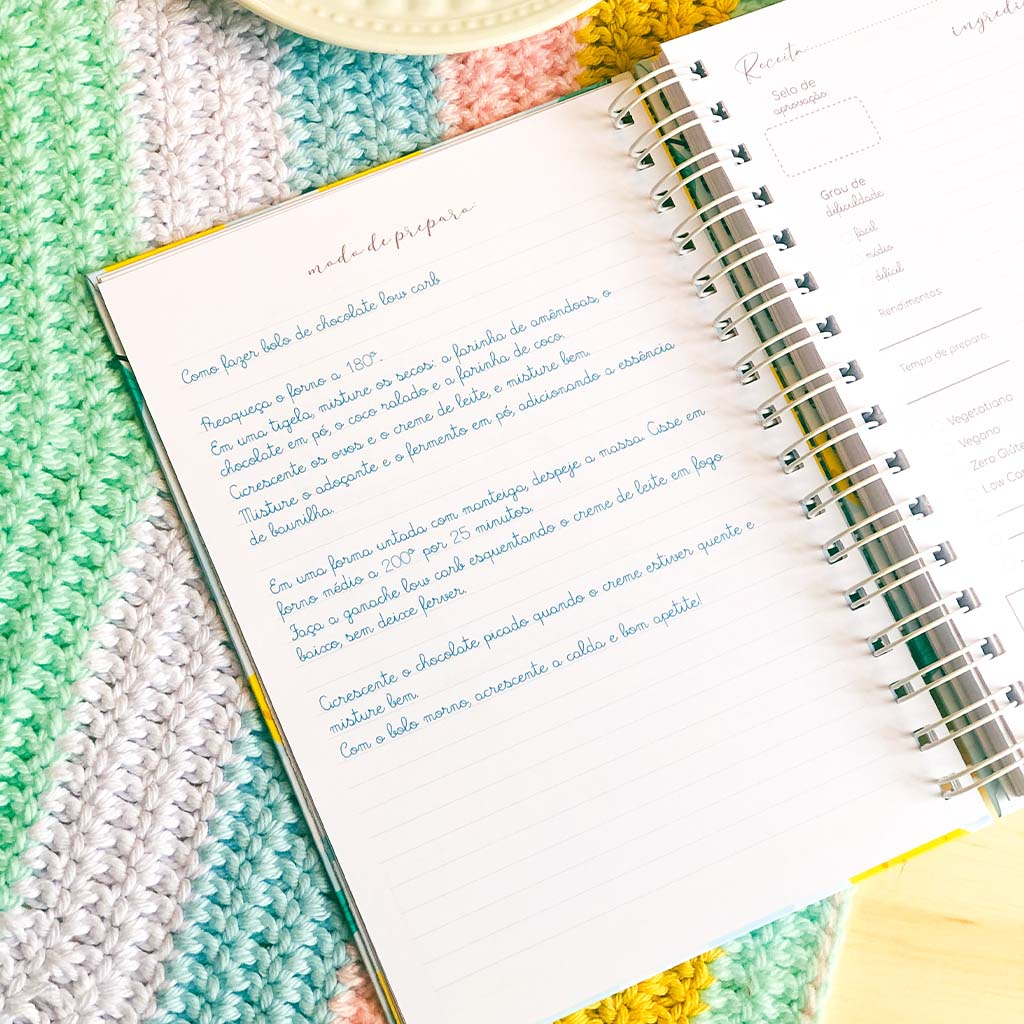 modo de preparo:
Como fazer bolo de chocolate low carb
Preaqueça o forno a 180°.
Em uma tigela, misture os secos: a farinha de amêndoas, o
chocolate em pó, o coco ralado e a farinha de coco.
Acrescente os ovos e o creme de leite, e misture bem.
Misture o adoçante e o fermento em pó, adicionando a essência
de baunilha.
Em uma forma untada com manteiga, despeje a massa. Asse em
forno médio a 200° por 25 minutos.
Faça a ganache low carb esquentando o creme de leite em fogo
baixo, sem deixe ferver.
Acrescente o chocolate picado quando o creme estiver quente e
misture bem.
Com o bolo morno, acrescente a calda e bom apetite!
Receita
Selo de
aprovação
Grau de
dificuldade
fácil
médio
difícil
Rendimentos:
Tempo de preparo:
Vegetariano
Vegano
Zero
Low